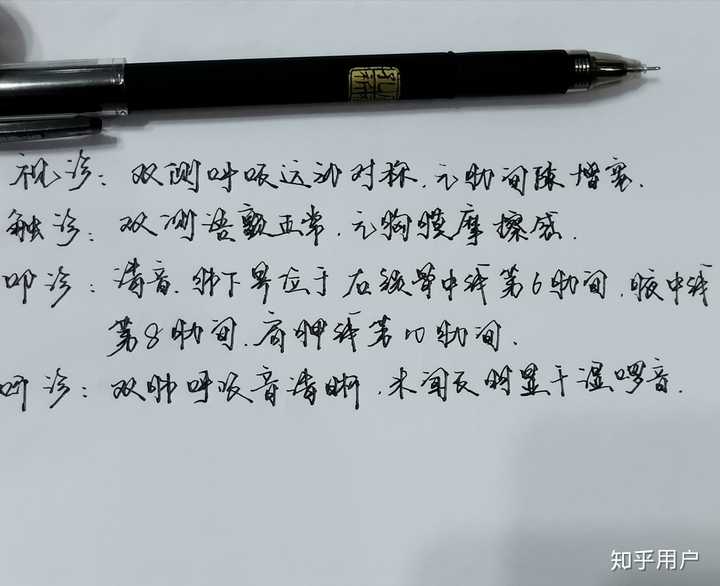 视诊：双侧呼吸运动对称，无肋间隙增宽．
触诊：双测语颤正常，无胸膜摩擦感．
叩诊：清音，肺下界位于右锁骨中线第6肋间，腋中线
第8肋间，肩胛线第10肋间．
听诊：双肺呼吸音清晰，未闻及明显干湿啰音．
知乎用户